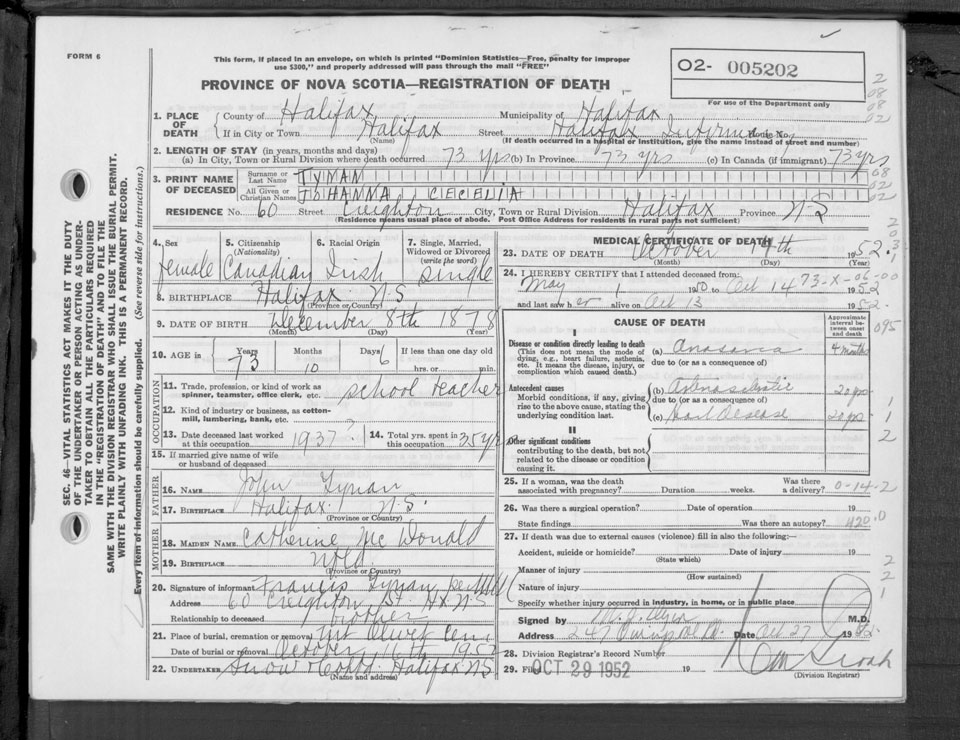 FORM 6
This form, if placed in an envelope, on which is printed "Dominion Statistics—Free, penalty for improper
use $300," and properly addressed will pass through the mail "FREE"
O2- 005202
PROVINCE OF NOVA SCOTIA—REGISTRATION OF DEATH
For use of the Department only
2
08
08
02
1. PLACE OF DEATH County of Halifax Municipality of Halifax
If in City or Town Halifax Street Halifax Infirmary House No.
(Name) (If death occurred in a hospital or institution, give the name instead of street and number)
2. LENGTH OF STAY (in years, months and days)
(a) In City, Town or Rural Division where death occurred 73 yrs (b) In Province 73 yrs (c) In Canada (if immigrant) 73 yrs
3. PRINT NAME OF DECEASED Surname or Last Name TYNAN
All Given or Christian Names JOHANNA CECELIA
08
02
02
RESIDENCE No. 60 Street Creighton City, Town or Rural Division Halifax Province N-S
(Residence means usual place of abode. Post Office Address for residents in rural parts not sufficient)
4. Sex 5. Citizenship (Nationality) 6. Racial Origin 7. Single, Married, Widowed or Divorced (write the word)
female Canadian Irish single
8. BIRTHPLACE Halifax N S
(Province or Country)
9. DATE OF BIRTH December 8th 1878
(Month) (Day) (Year)
10. AGE in Years Months Days If less than one day old
73 10 6 hrs. or min.
OCCUPATION
11. Trade, profession, or kind of work as spinner, teamster, office clerk, etc. school teacher
12. Kind of industry or business, as cotton-mill, lumbering, bank, etc.
13. Date deceased last worked at this occupation 1937? 14. Total yrs. spent in this occupation 35 yrs
15. If married give name of wife or husband of deceased
FATHER
16. NAME John Tynan
17. BIRTHPLACE Halifax N S
(Province or Country)
MOTHER
18. MAIDEN NAME Catherine Mc Donald
19. BIRTHPLACE Nfld
(Province or Country)
20. Signature of informant Francis Tynan
Address 60 Creighton St Hx N S
Relationship to deceased brother
21. Place of burial, cremation or removal Mt Olivet Cem
Date of burial or removal October 16th 1952
22. UNDERTAKER Snow & Co Ltd. Halifax NS
(Name and address)
MEDICAL CERTIFICATE OF DEATH
23. DATE OF DEATH October 14th 1952
(Month) (Day) (Year)
24. I HEREBY CERTIFY that I attended deceased from:
May 1 1950 to Oct 14 1952
73-X-06-00
and last saw her alive on Oct 13 1952
CAUSE OF DEATH
Approximate interval between onset and death
095
I
Disease or condition directly leading to death
(This does not mean the mode of dying, e.g., heart failure, asthenia, etc. It means the disease, injury, or complication which caused death.)
(a) Anasarca 4 months
due to (or as a consequence of)
Antecedent causes
Morbid conditions, if any, giving rise to the above cause, stating the underlying condition last.
(b) Arteriosclerotic 20 yrs
due to (or as a consequence of)
(c) Heart Disease 20 yrs
II
Other significant conditions
contributing to the death, but not related to the disease or condition causing it.
25. If a woman, was the death associated with pregnancy? Duration weeks. Was there a delivery? 0-14-2
26. Was there a surgical operation? Date of operation 19
State findings Was there an autopsy? 420.0
27. If death was due to external causes (violence) fill in also the following:—
Accident, suicide or homicide? Date of injury 19
(State which)
Manner of injury
(How sustained)
Nature of injury
Specify whether injury occurred in industry, in home, or in public place
Signed by M.D.
Address 247 Date Oct 27 1952.
28. Division Registrar's Record Number
29. Filed OCT 29 1952 19
(Division Registrar)
SEC. 46—VITAL STATISTICS ACT MAKES IT THE DUTY
OF THE UNDERTAKER OR PERSON ACTING AS UNDER-
TAKER TO OBTAIN ALL THE PARTICULARS REQUIRED
IN THE "REGISTRATION OF DEATH" AND TO FILE THE
SAME WITH THE DIVISION REGISTRAR WHO SHALL ISSUE THE BURIAL PERMIT.
WRITE PLAINLY WITH UNFADING INK. THIS IS A PERMANENT RECORD.
Every item of information should be carefully supplied. (See reverse side for instructions.)